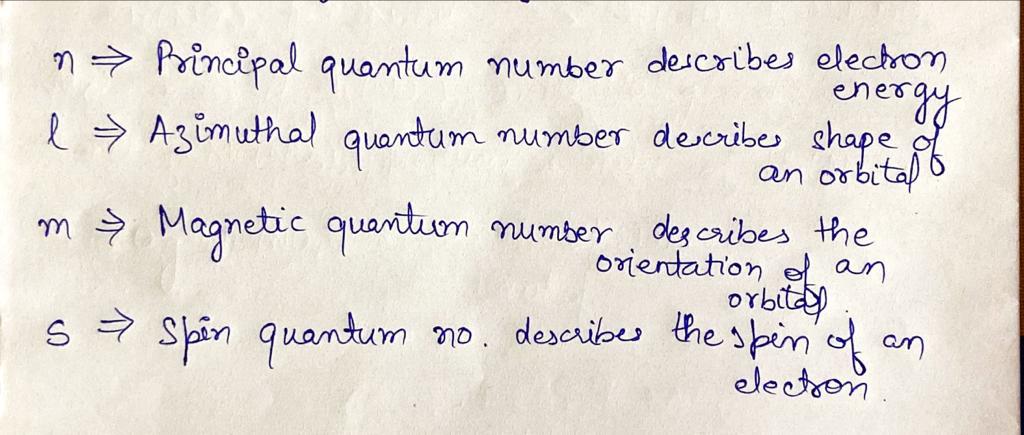 n ⇒ Principal quantum number describes electron
energy
l ⇒ Azimuthal quantum number describes shape of
an orbital
m ⇒ Magnetic quantum number describes the
orientation of an
orbital.
s ⇒ Spin quantum no. describes the spin of an
electron.